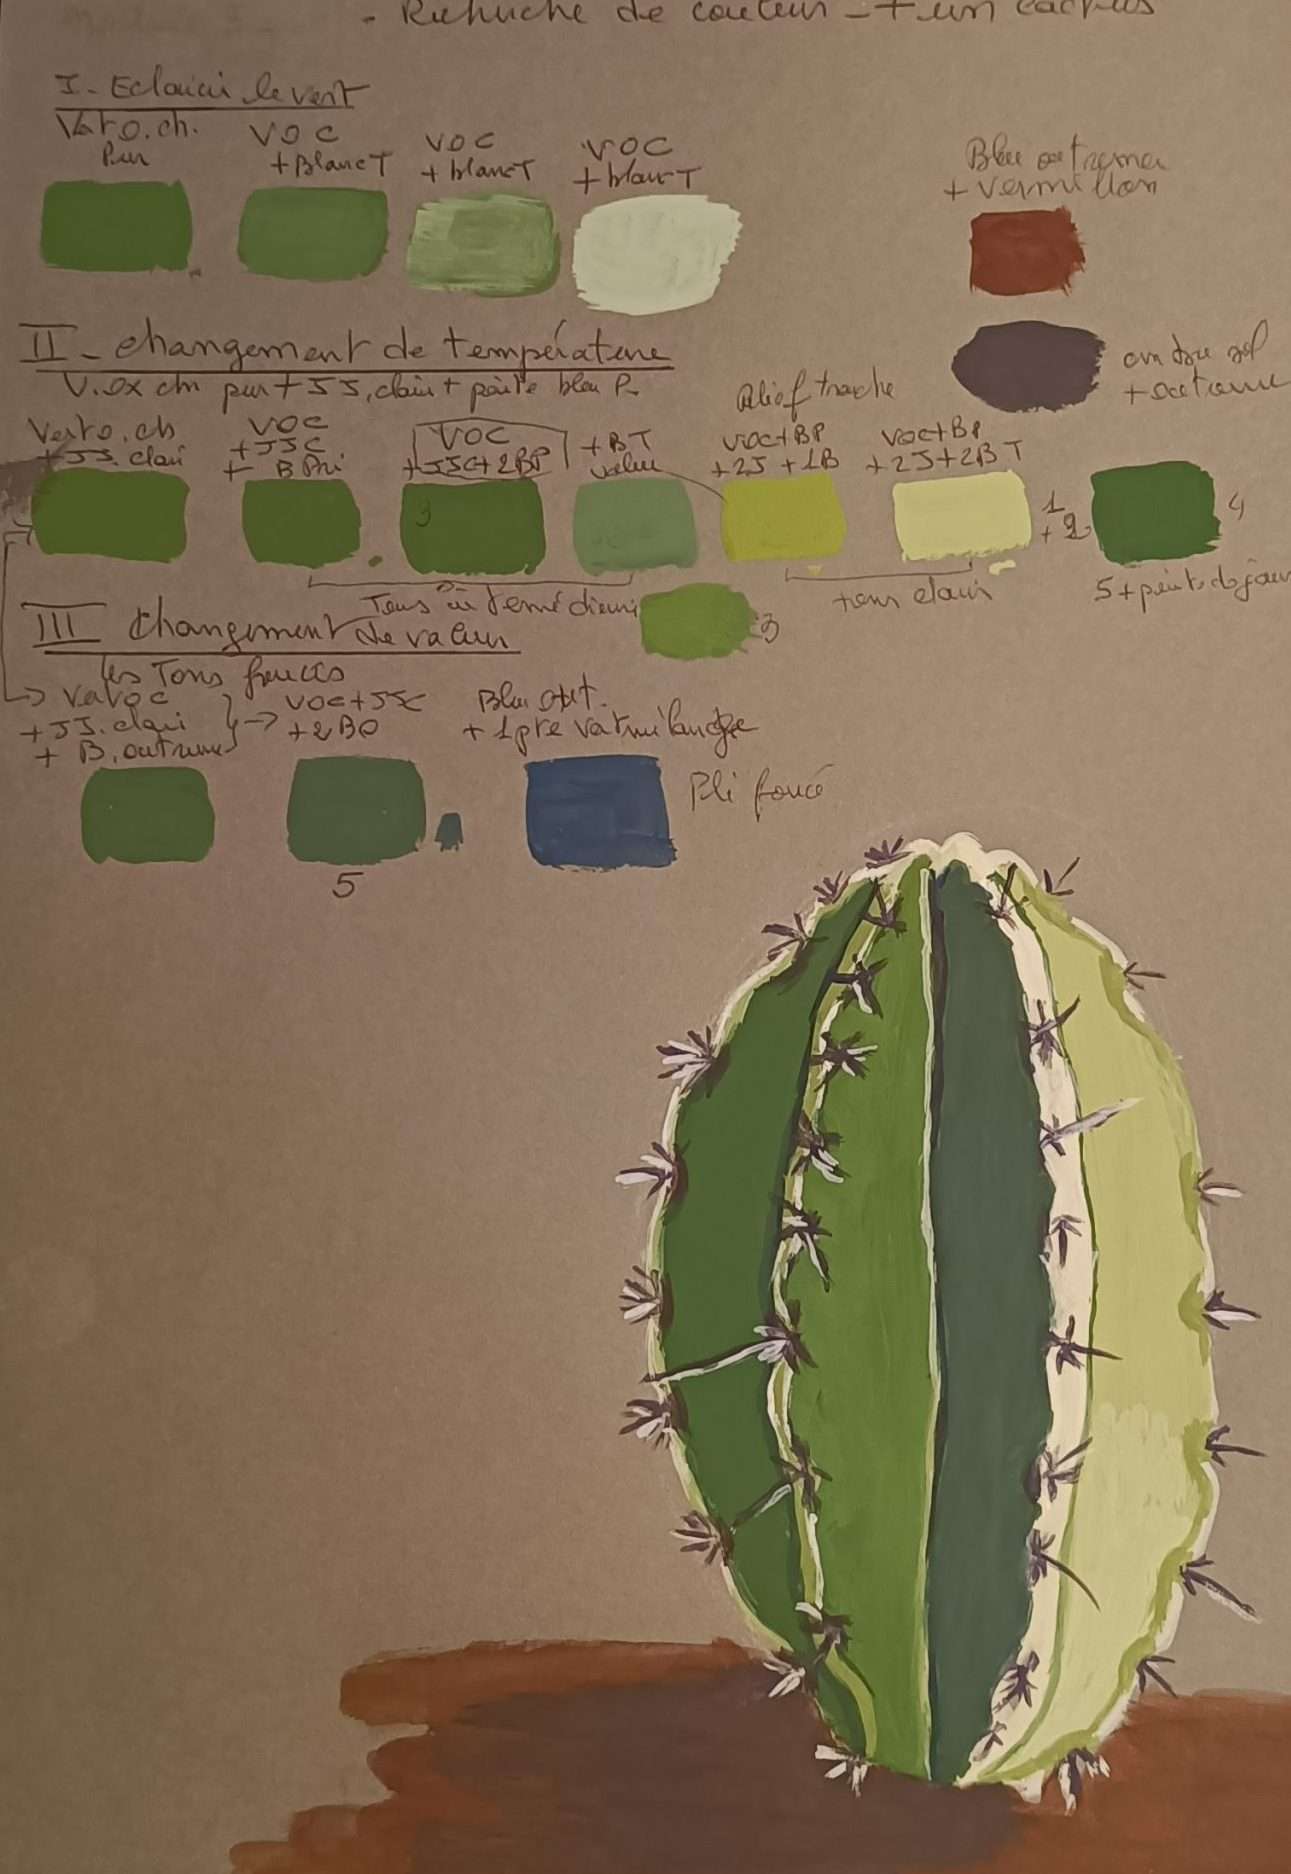 - Recherche de couleur - + un cactus
I - Eclaicir le vert
Vert o. ch.
Pur
VOC
+ Blanc T
VOC
+ blanc T
VOC
+ blanc T
Bleu outremer
+ vermillon
II - changement de température
V. ox chr pur + JJ. clair + pointe bleu P.
ombre sol
+ outreme
Relief tranche
Vert o. ch
+ JJ. clair
VOC
+ JJC
+ B Pri
VOC
+ JJC + 2BP
+ BT
valeur
VOC + BP
+ 2J + 1B
VOC + BP
+ 2J + 2BT
3
1
+ 2
4
Tons intermédiaires
tons clairs
5 + pointe de jaun
3
III Changement de valeur
les Tons foncés
Vert oc
+ JJ. clair
+ B. outremer
→ VOC + JJC
+ 2BO
Bleu out.
+ 1 pte vert mélange
Pli foncé
5